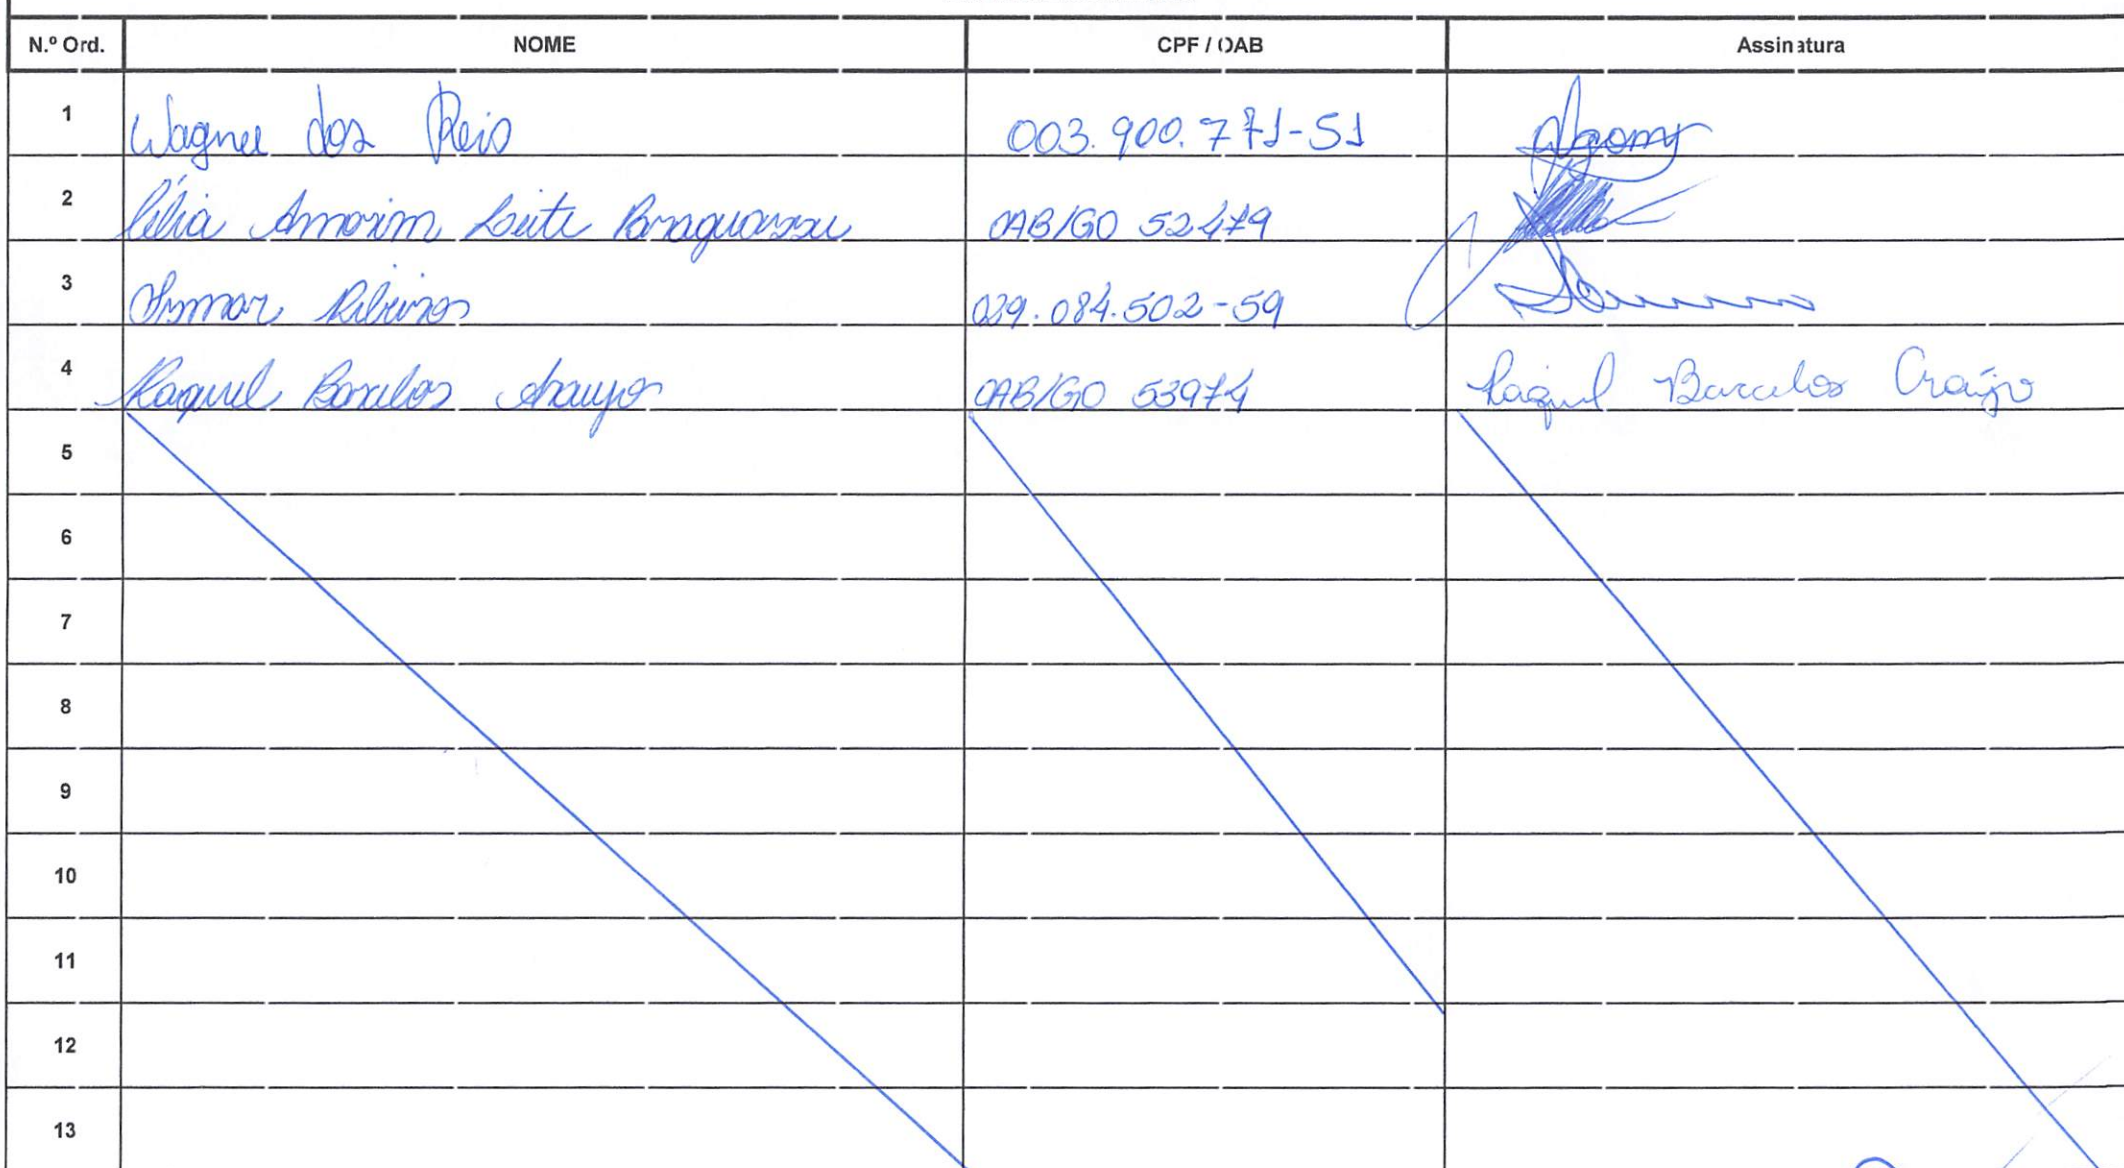 N.º Ord. NOME CPF / OAB Assinatura
1 Wagner dos Reis 003.900.771-51
2 Célia Amorim Leite Paraguassu OAB/GO 52479
3 Ismar Ribeiro 029.084.502-59
4 Raquel Barcelos Araujo OAB/GO 53974 Raquel Barcelos Araújo
5
6
7
8
9
10
11
12
13